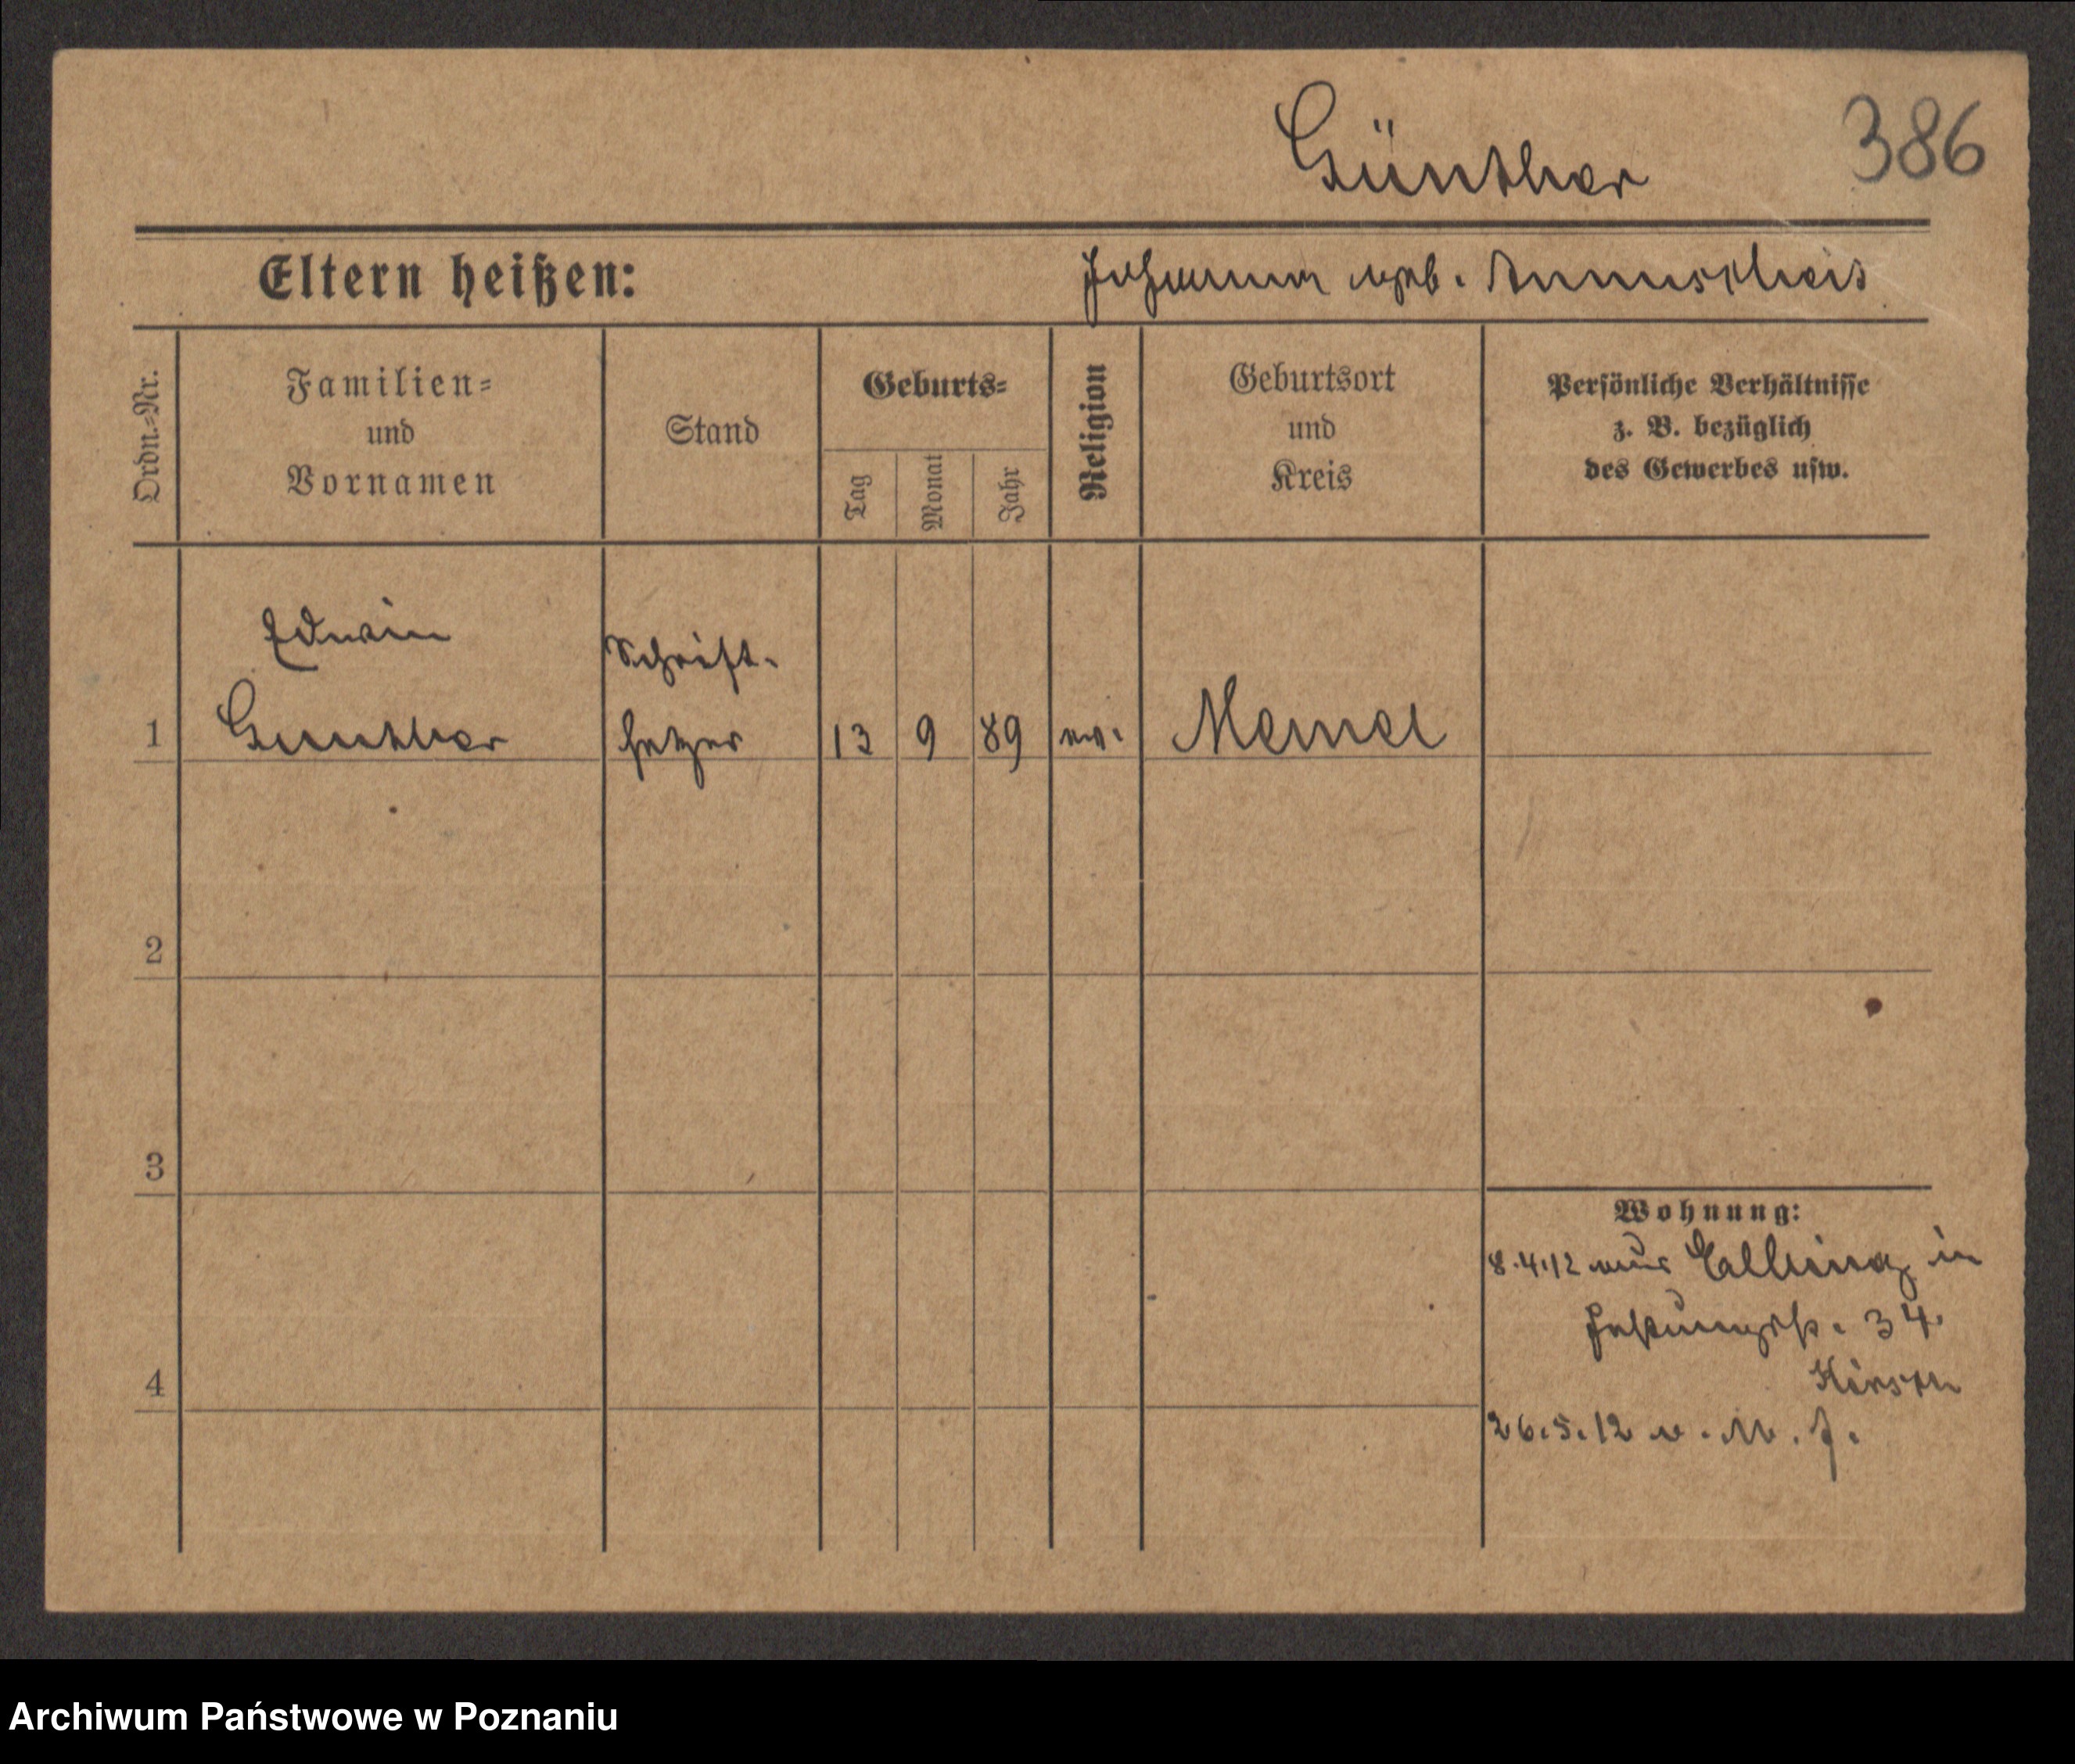 Günther
386
Eltern heißen:
Johanna geb. Annuscheis
Ordn.=Nr.
Familien=
und
Vornamen
Stand
Geburts=
Tag
Monat
Jahr
Religion
Geburtsort
und
Kreis
Persönliche Verhältnisse
z. B. bezüglich
des Gewerbes usw.
Edwin
Günther
Schrift-
setzer
1
13
9
89
ev.
Memel
2
3
4
Wohnung:
8.4.12 aus Elbing in
34.
26.5.12
Archiwum Państwowe w Poznaniu